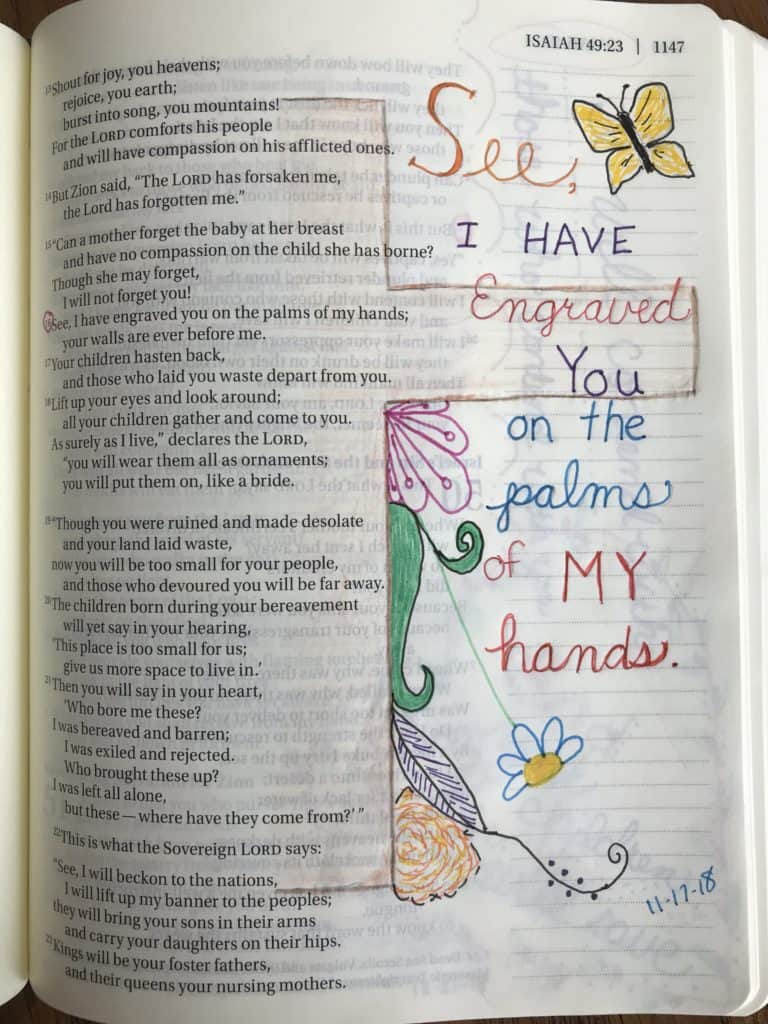 ISAIAH 49:23 | 1147
13Shout for joy, you heavens;
rejoice, you earth;
burst into song, you mountains!
For the LORD comforts his people
and will have compassion on his afflicted ones.
14But Zion said, “The LORD has forsaken me,
the Lord has forgotten me.”
15“Can a mother forget the baby at her breast
and have no compassion on the child she has borne?
Though she may forget,
I will not forget you!
16See, I have engraved you on the palms of my hands;
your walls are ever before me.
17Your children hasten back,
and those who laid you waste depart from you.
18Lift up your eyes and look around;
all your children gather and come to you.
As surely as I live,” declares the LORD,
“you will wear them all as ornaments;
you will put them on, like a bride.
19“Though you were ruined and made desolate
and your land laid waste,
now you will be too small for your people,
and those who devoured you will be far away.
20The children born during your bereavement
will yet say in your hearing,
‘This place is too small for us;
give us more space to live in.’
21Then you will say in your heart,
‘Who bore me these?
I was bereaved and barren;
I was exiled and rejected.
Who brought these up?
I was left all alone,
but these — where have they come from?’ ”
22This is what the Sovereign LORD says:
“See, I will beckon to the nations,
I will lift up my banner to the peoples;
they will bring your sons in their arms
and carry your daughters on their hips.
23Kings will be your foster fathers,
and their queens your nursing mothers.
See,
I HAVE
Engraved
You
on the
palms
of MY
hands.
11-17-18